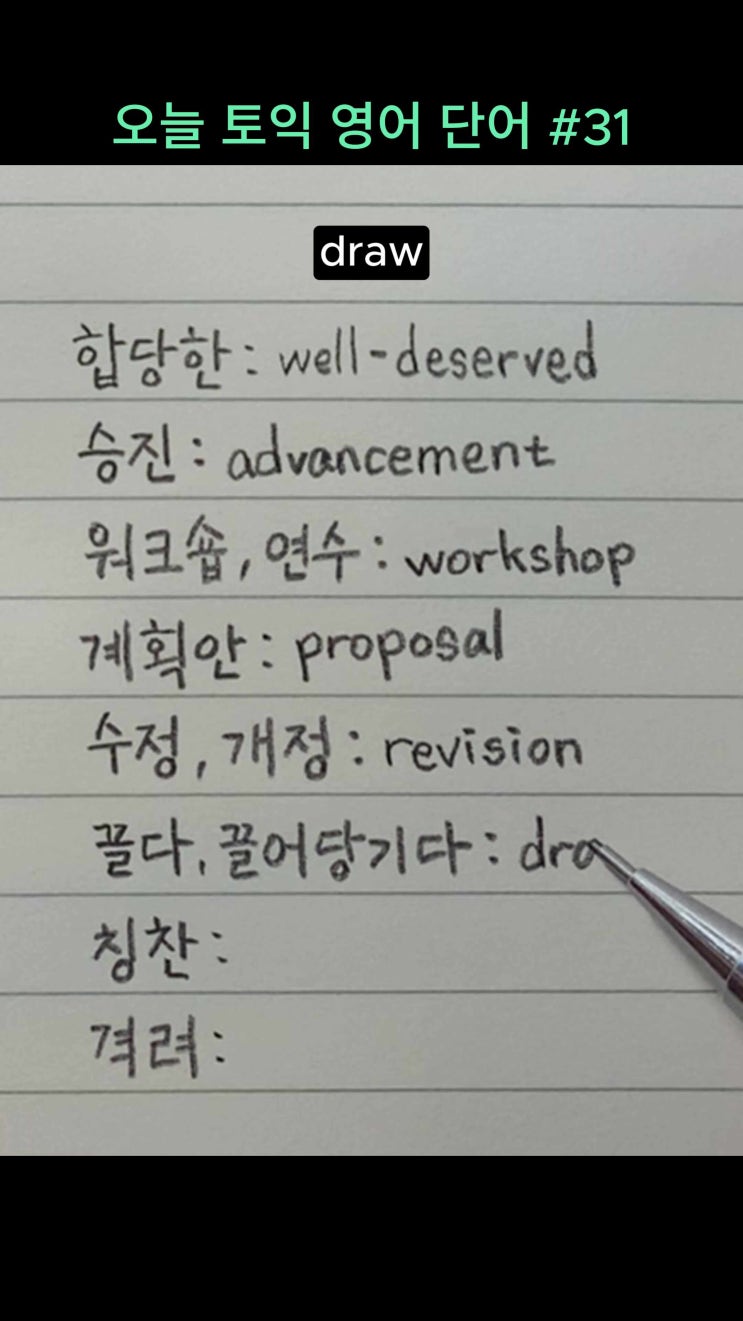 오늘 토익 영어 단어 #31
draw
합당한 : well-deserved
승진 : advancement
워크숍, 연수 : workshop
계획안 : proposal
수정, 개정 : revision
끌다, 끌어당기다 : dra
칭찬 :
격려 :